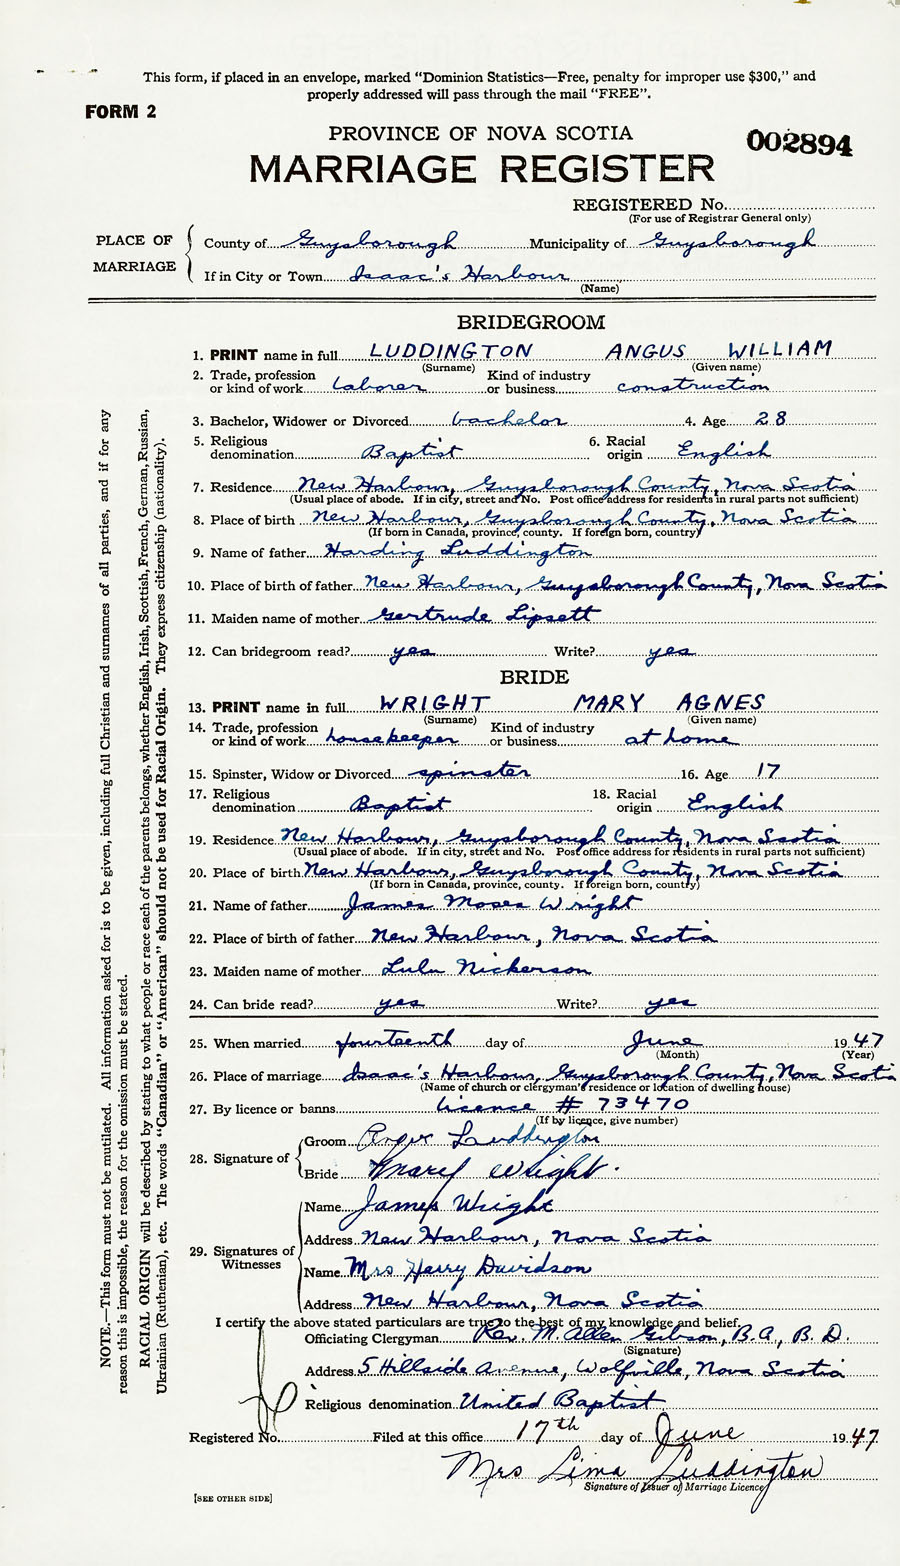 This form, if placed in an envelope, marked "Dominion Statistics—Free, penalty for improper use $300," and
properly addressed will pass through the mail "FREE".
FORM 2
PROVINCE OF NOVA SCOTIA
002894
MARRIAGE REGISTER
REGISTERED No.
(For use of Registrar General only)
PLACE OF MARRIAGE
County of Guysborough Municipality of Guysborough
If in City or Town Isaac's Harbour
(Name)
BRIDEGROOM
1. PRINT name in full LUDDINGTON ANGUS WILLIAM
(Surname) (Given name)
2. Trade, profession or kind of work laborer Kind of industry or business construction
3. Bachelor, Widower or Divorced bachelor 4. Age 28
5. Religious denomination Baptist 6. Racial origin English
7. Residence New Harbour, Guysborough County, Nova Scotia
(Usual place of abode. If in city, street and No. Post office address for residents in rural parts not sufficient)
8. Place of birth New Harbour, Guysborough County, Nova Scotia
(If born in Canada, province, county. If foreign born, country)
9. Name of father Harding Luddington
10. Place of birth of father New Harbour, Guysborough County, Nova Scotia
11. Maiden name of mother Gertrude Lipsett
12. Can bridegroom read? yes Write? yes
BRIDE
13. PRINT name in full WRIGHT MARY AGNES
(Surname) (Given name)
14. Trade, profession or kind of work housekeeper Kind of industry or business at home
15. Spinster, Widow or Divorced spinster 16. Age 17
17. Religious denomination Baptist 18. Racial origin English
19. Residence New Harbour, Guysborough County, Nova Scotia
(Usual place of abode. If in city, street and No. Post office address for residents in rural parts not sufficient)
20. Place of birth New Harbour, Guysborough County, Nova Scotia
(If born in Canada, province, county. If foreign born, country)
21. Name of father James Moses Wright
22. Place of birth of father New Harbour, Nova Scotia
23. Maiden name of mother Lulu Nickerson
24. Can bride read? yes Write? yes
25. When married fourteenth day of June 1947
(Month) (Year)
26. Place of marriage Isaac's Harbour, Guysborough County, Nova Scotia
(Name of church or clergyman's residence or location of dwelling house)
27. By licence or banns licence # 73470
(If by licence, give number)
28. Signature of
Groom Luddington
Bride Mary Wright.
29. Signatures of Witnesses
Name James Wright
Address New Harbour, Nova Scotia
Name Mrs Harry Davidson
Address New Harbour, Nova Scotia
I certify the above stated particulars are true to the best of my knowledge and belief.
Officiating Clergyman Rev. M. Allen Gibson, B.A., B.D.
(Signature)
Address 5 Hillside Avenue, Wolfville, Nova Scotia
Religious denomination United Baptist
Registered No. Filed at this office 17th day of June 1947
Mrs Lima Luddington
Signature of Issuer of Marriage Licence
[SEE OTHER SIDE]
NOTE.—This form must not be mutilated. All information asked for is to be given, including full Christian and surnames of all parties, and if for any
reason this is impossible, the reason for the omission must be stated.
RACIAL ORIGIN will be described by stating to what people or race each of the parents belongs, whether English, Irish, Scottish, French, German, Russian,
Ukrainian (Ruthenian), etc. The words "Canadian" or "American" should not be used for Racial Origin. They express citizenship (nationality).